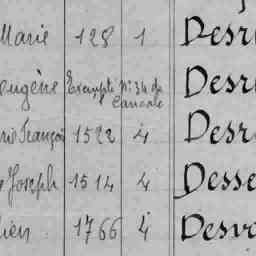 Marie 128 1 Desr
eugène Exempté N: 34 de Cancale Desr
François 1522 4 Desr
Joseph 1514 4 Desse
ien 1766 4 Desvo